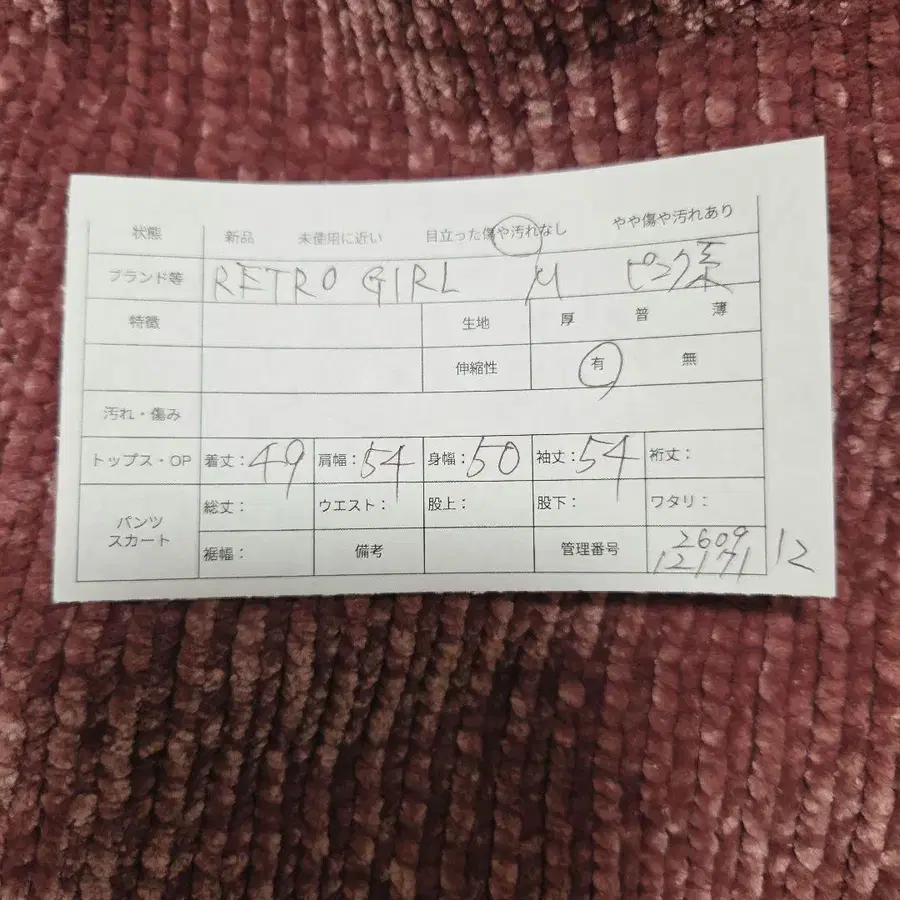 状態 新品 未使用に近い 目立った傷や汚れなし やや傷や汚れあり
ブランド等 RETRO GIRL M ピンク系
特徴 生地 厚 普 薄
伸縮性 有 無
汚れ・傷み
トップス・OP 着丈：49 肩幅：54 身幅：50 袖丈：54 裄丈：
パンツ スカート 総丈： ウエスト： 股上： 股下： ワタリ：
裾幅： 備考 管理番号 2609
12171 12